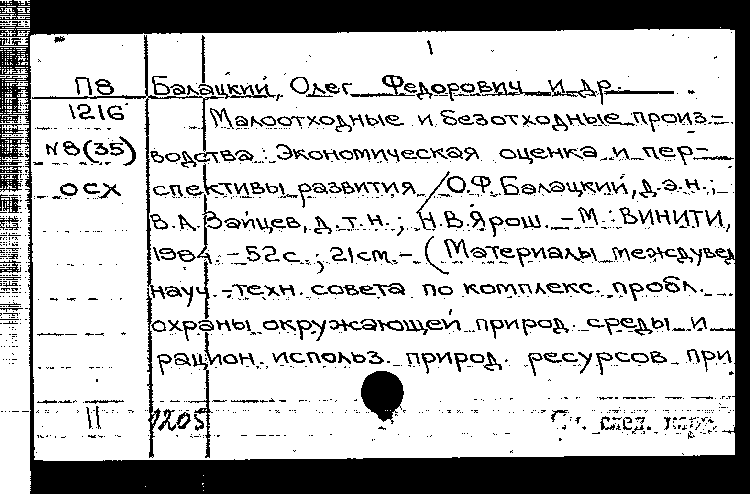 1
П8 Балацкий, Олег Федорович и др.
1216 Малоотходные и безотходные произ-
N8(35) водства: Экономическая оценка и пер-
осх спективы развития / О.Ф. Балацкий, д.э.н.;
В.А. Зайцев, д.т.н.; Н.В. Ярош. - М.: ВИНИТИ,
1984. - 52с.; 21см. - (Материалы междувед
науч.-техн. совета по комплекс. пробл.
охраны окружающей природ. среды и
рацион. использ. природ. ресурсов при
11 1205 См. след. карт